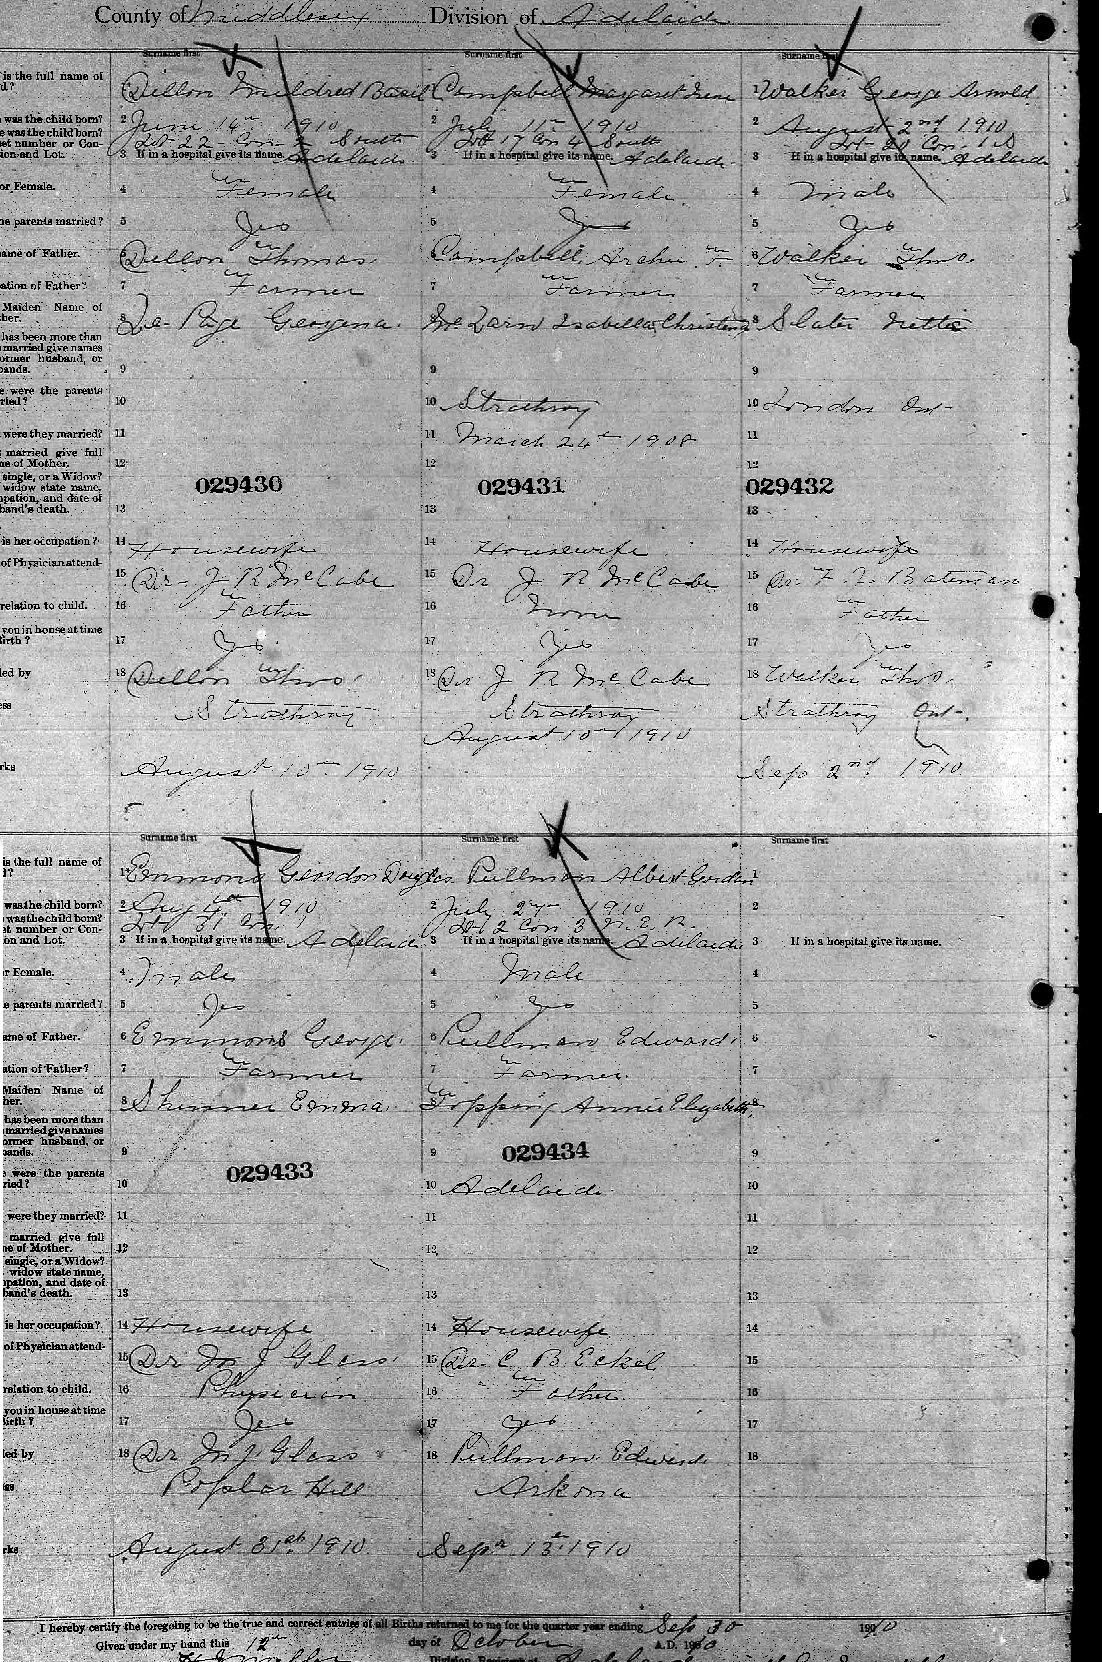 County of Middlesex Division of Adelaide
Surname first Surname first Surname first
is the full name of
1 Dillon Mildred Basil Campbell Margaret Irene 1 Walker George Arnold
was the child born? 2 June 14th 1910 2 July 11th 1910 2 August 2nd 1910
e was the child born?
Lot 22 Con 2 South Lot 17 Con 4 South Lot 20 Con 1 S
ion and Lot. 3 If in a hospital give its name. Adelaide 3 If in a hospital give its name. Adelaide 3 If in a hospital give its name. Adelaide
or Female. 4 Female 4 Female. 4 Male
he parents married? 5 Yes 5 Yes 5 Yes
ame of Father. 6 Dillon Thomas 6 Campbell Archie F. 6 Walker Thos.
ation of Father? 7 Farmer 7 Farmer 7 Farmer
Maiden Name of
ther. 8 Le Page Georgena. Isabella Christena 8 Slater Nettie
has been more than
married give names
ormer husband, or
bands. 9 9 9
e were the parents
ried? 10 10 Strathroy 10 London Ont-
were they married? 11 11 March 24th 1908 11
married give full
ne of Mother. 12 12 12
single, or a Widow?
widow state name, 029430 029431 029432
upation, and date of
band's death. 13 13 13
is her occupation? 14 Housewife 14 Housewife 14 Housewife
of Physician attend-
15 Dr. J R McCabe 15 Dr J R McCabe 15 Dr. F J. Bateman
relation to child. 16 Father 16 None 16 Father
you in house at time
Birth? 17 Yes 17 Yes 17 Yes
led by 18 Dillon Thos. 18 Dr J R McCabe 18 Walker Thos.
ess Strathroy Strathroy Strathroy Ont-.
August 10th 1910
rks August 10th 1910 Sep 2nd 1910
Surname first Surname first Surname first
is the full name of
1 Emmons Gordon Douglas Pullman Albert Gordon 1
was the child born? 2 Aug 6th 1910 2 July 2nd 1910 2
was the child born?
Lot 31 Con 1 Lot 2 Con 3 N. E. R.
on and Lot. 3 If in a hospital give its name. Adelaide 3 If in a hospital give its name. Adelaide 3 If in a hospital give its name.
r Female. 4 Male 4 Male 4
e parents married? 5 Yes 5 Yes 5
ame of Father. 6 Emmons George. 6 Pullman Edward. 6
ation of Father? 7 Farmer 7 Farmer. 7
Maiden Name of
her. 8 Skinner Emma. 8 Topping Annie Elizabeth 8
has been more than
married give names
ormer husband, or
bands. 9 9 029434 9
e were the parents 029433
ried? 10 10 Adelaide 10
were they married? 11 11 11
married give full
ne of Mother. 12 12 12
single, or a Widow?
widow state name,
pation, and date of
band's death. 13 13 13
is her occupation? 14 Housewife 14 Housewife 14
of Physician attend-
15 Dr M J Glass. 15 Dr. C. B. Eckel 15
relation to child. 16 Physician 16 Father. 16
you in house at time
Birth? 17 Yes 17 Yes 17
led by 18 Dr M J Glass 18 Pullman Edward 18
ss Poplar Hill Arkona
rks August 31st 1910. Sepr 13th 1910
I hereby certify the foregoing to be the true and correct entries of all Births returned to me for the quarter year ending Sep 30 1910
Given under my hand this 12th day of October A.D. 1910
Division Registrar of Adelaide